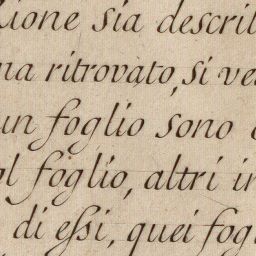 ione sia descrit
na ritrovato, si ve
un foglio sono
l foglio, altri in
di eſsi, quei fog